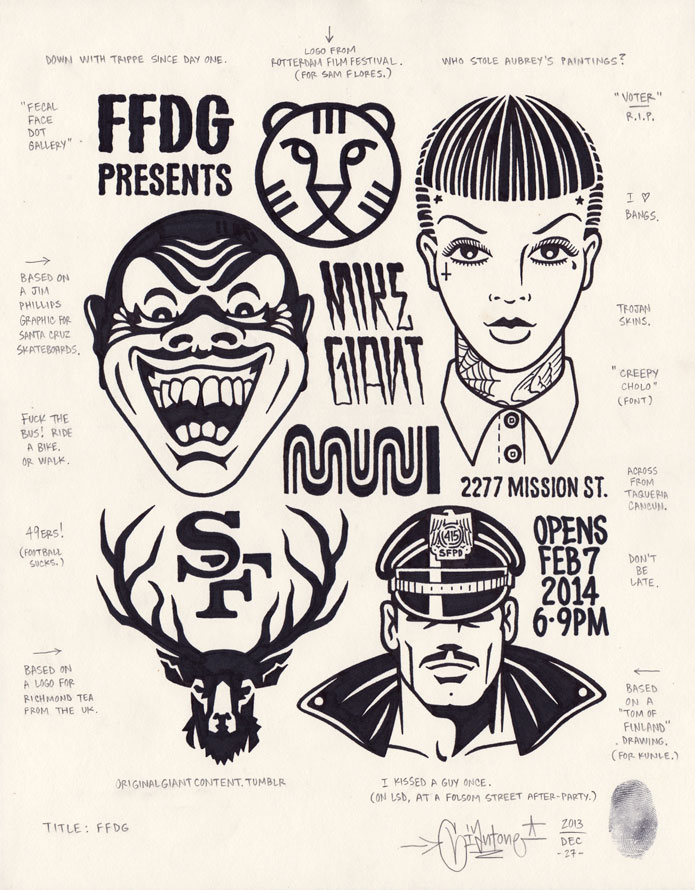 DOWN WITH TRIPPE SINCE DAY ONE.
LOGO FROM
ROTTERDAM FILM FESTIVAL.
(FOR SAM FLORES.)
WHO STOLE AUBREY'S PAINTINGS?
"FECAL
FACE
DOT
GALLERY"
FFDG
PRESENTS
"VOTER"
R.I.P.
I ♡
BANGS.
BASED ON
A JIM
PHILLIPS
GRAPHIC FOR
SANTA CRUZ
SKATEBOARDS.
MIKE
GIANT
TROJAN
SKINS.
"CREEPY
CHOLO"
(FONT)
FUCK THE
BUS! RIDE
A BIKE.
OR WALK.
MUNI
2277 MISSION ST.
ACROSS
FROM
TAQUERIA
CANCUN.
49ERS!
(FOOTBALL
SUCKS.)
SF
415
SFPD
OPENS
FEB 7
2014
6·9PM
DON'T
BE
LATE.
BASED ON
A LOGO FOR
RICHMOND TEA
FROM THE UK.
BASED
ON A
"TOM OF
FINLAND"
DRAWING.
(FOR KUNLE.)
ORIGINALGIANTCONTENT.TUMBLR
I KISSED A GUY ONCE.
(ON LSD, AT A FOLSOM STREET AFTER-PARTY.)
TITLE: FFDG
2013
DEC
-27-